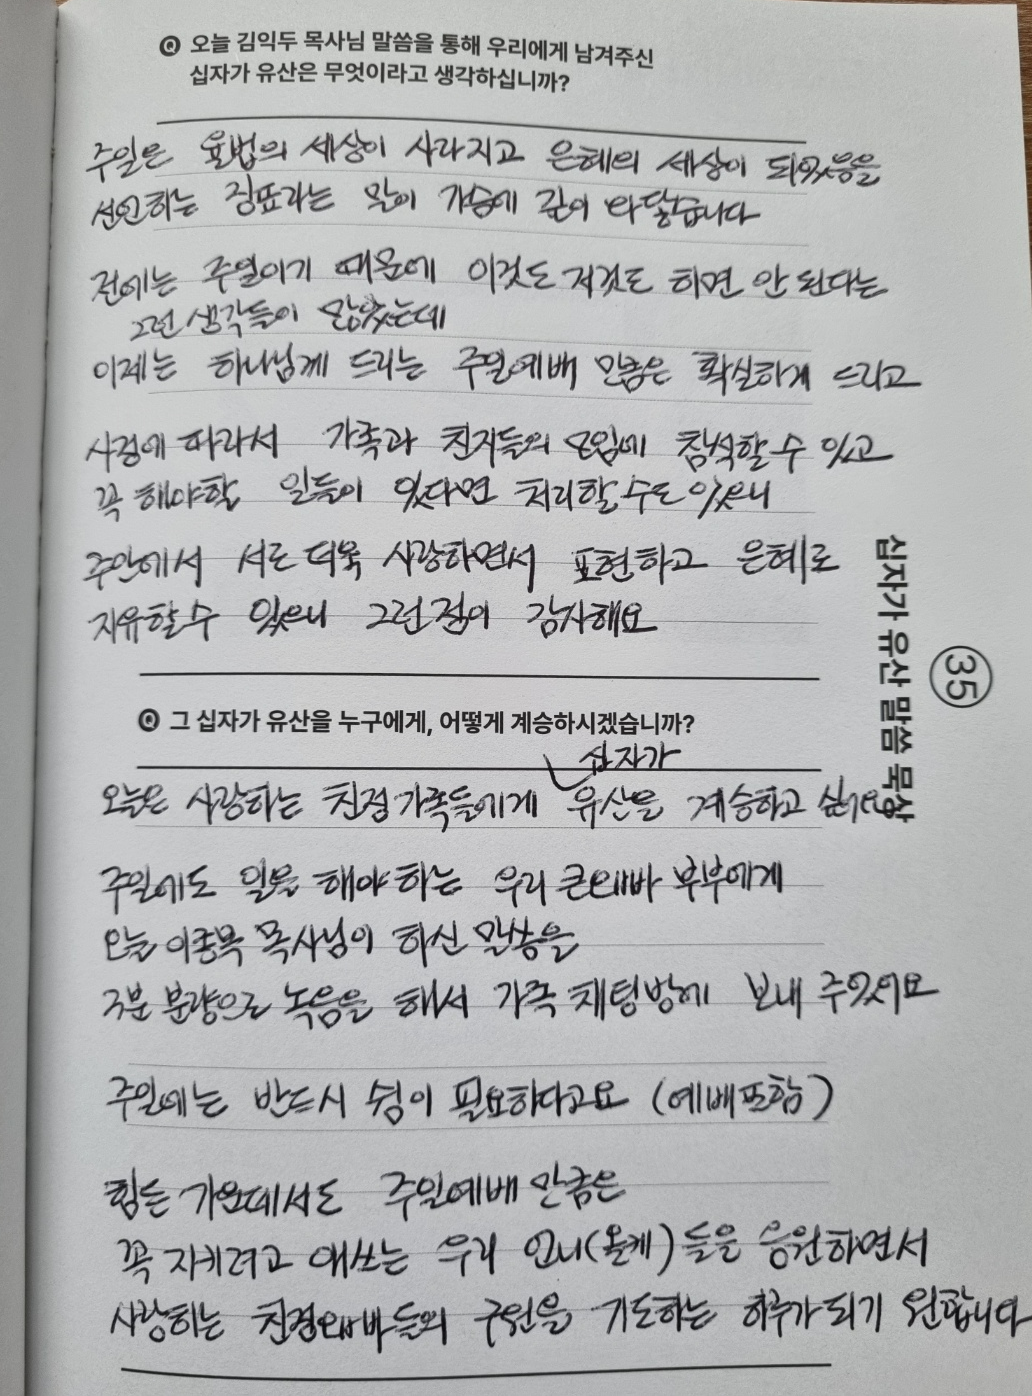 Q 오늘 김익두 목사님 말씀을 통해 우리에게 남겨주신
십자가 유산은 무엇이라고 생각하십니까?
주일은 율법의 세상이 사라지고 은혜의 세상이 되었음을
선언하는 징표라는 말이 가슴에 깊이 와닿습니다
전에는 주일이기 때문에 이것도 저것도 하면 안 된다는
그런 생각들이 많았는데
이제는 하나님께 드리는 주일예배 만큼은 확실하게 드리고
사정에 따라서 가족과 친지들의 모임에 참석할 수 있고
꼭 해야할 일들이 있다면 처리할 수도 있으니
주안에서 서로 더욱 사랑하면서 표현하고 은혜로
자유할 수 있으니 그런 점이 감사해요
Q 그 십자가 유산을 누구에게, 어떻게 계승하시겠습니까?
십자가
오늘은 사랑하는 친정 가족들에게 유산을 계승하고 싶어요
주일에도 일을 해야 하는 우리 큰오빠 부부에게
오늘 이종목 목사님이 하신 말씀을
3분 분량으로 녹음을 해서 가족 채팅방에 보내 주었어요
주일에는 반드시 쉼이 필요하다고요 (예배포함)
힘든 가운데서도 주일예배 만큼은
꼭 지키려고 애쓰는 우리 언니(올케)들을 응원하면서
사랑하는 친정오빠들의 구원을 기도하는 하루가 되기 원합니다
십자가 유산 말씀 묵상
35